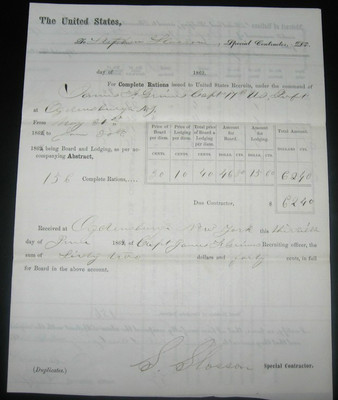 The United States,
To Special Contractor, Dr.
day of 186
For Complete Rations issued to United States Recruits, under the command of
James F. Grimes Capt 17th U.S. Inf
at Ogdensburgh N.Y.
From May 21st
186 to June 30th
186 being Board and Lodging, as per accompanying Abstract,
Price of Board per diem. Price of Lodging per diem. Total price of Board & Lodging. Amount for Board. Amount for Lodging. Total Amount.
CENTS. CENTS. CENTS. DOLLS. CTS. DOLLS. CTS. DOLLARS CTS.
156 Complete Rations, 30 10 40 46 80 15 60 62 40
Due Contractor, $ 62 40
Received at Ogdensburgh New York this thirtieth
day of June 186 of Capt James F. Grimes Recruiting officer, the
sum of Sixty two dollars and forty cents, in full
for Board in the above account.
S. Slosson
(Duplicates.) Special Contractor.